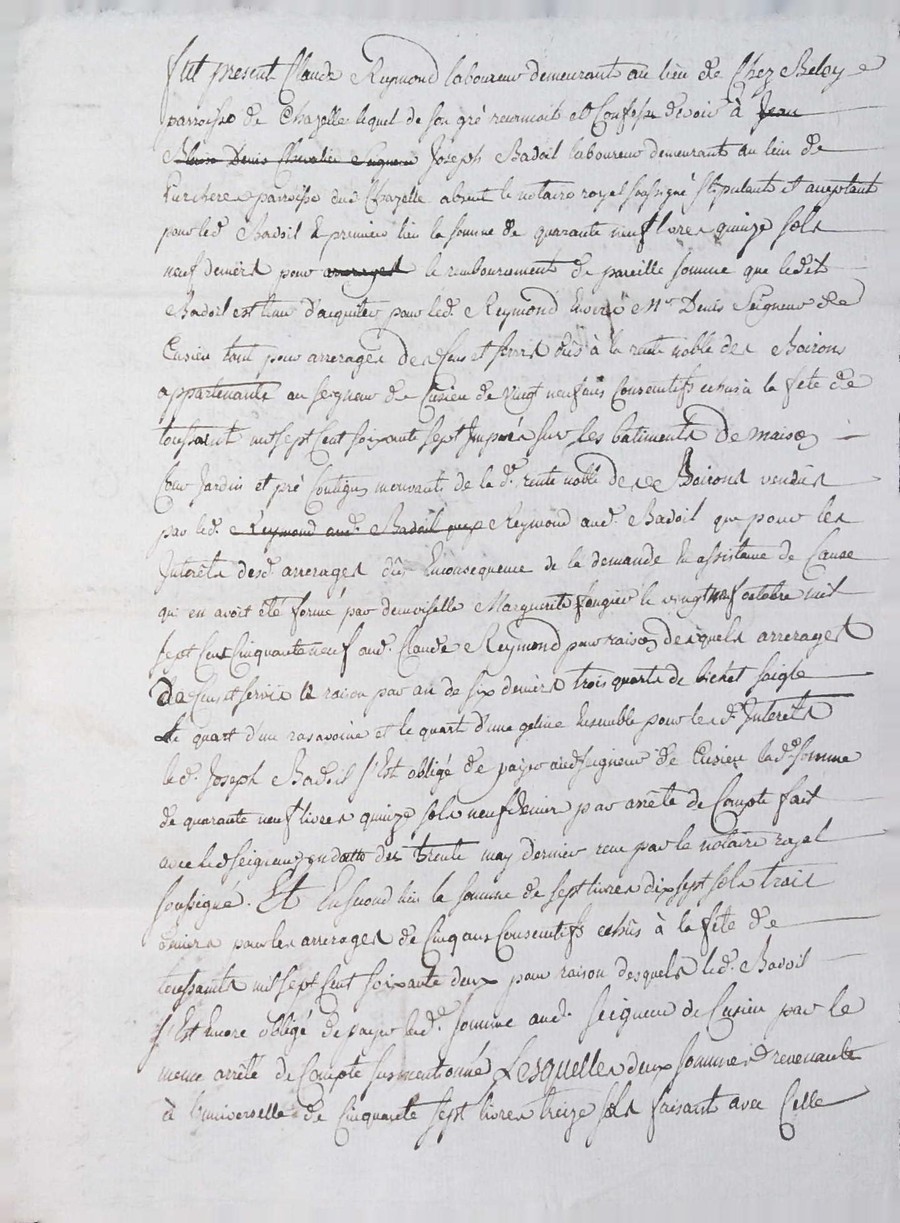 fut present Claude Reymond laboureur demeurant au lieu de Chez Beloy
parroisse de Chazelle lequel de son gré reconnoit et Confesse devoir à Jean
Blaise Denis Chevalier Seigneur Joseph Badoil laboureur demeurant au lieu de
parroisse dud Chazelle absent le notaire royal soussigné stipulant et acceptant
pour led. Badoil En premier lieu la somme de quarante neuf livres quinze sols
neuf deniers pour arrerages le remboursement de pareille somme que ledit
Badoil est tenu d'aquiter pour led. Reymond Envers Mr Denis Seigneur de
Cusieu tant pour arrerages de Cens et servis dûs à la rente noble des Boirons
appartenante au seigneur de Cusieu de vingt neuf ans Consecutifs echus à la fete de
toussaint mil sept Cent soixante sept Imposés sur les batiments de maison
Cour Jardin et pré Contigus mouvants de la de. rente noble des Boirons vendus
par led. Reymond aud. Badoil Reymond aud. Badoil que pour les
Interêts desd. arrerages dûs En consequence de la demande En assistance de Cause
qui en avoit été formé par demoiselle Marguerite fougier le vingt neuf octobre mil
sept Cent Cinquante neuf aud. Claude Reymond pour raison desquels arrerages
de Cens et servis à raison par an de six deniers trois quarts de bichet seigle
le quart d'un ras avoine et le quart d'une geline Ensemble pour les d. Interets
led. Joseph Badoil s'Est obligé de payer aud seigneur de Cusieu lad. somme
de quarante neuf livres quinze sols neuf denier par arrêté de Compte fait
avec led seigneur en datte du trente may dernier reçu par le notaire royal
soussigné. Et En second lieu la somme de sept livres dix sept sols trois
deniers pour les arrerages de Cinq ans Consecutifs echûs à la fête de
toussaints mil sept Cent soixante deux pour raison desquels led. Badoil
s'Est Encore obligé de payer lade. somme aud. seigneur de Cusieu par le
meme arrêté de Compte susmentionné Lesquelles deux sommes revenante
à l'universelle de Cinquante sept livres treize sols faisant avec Celle